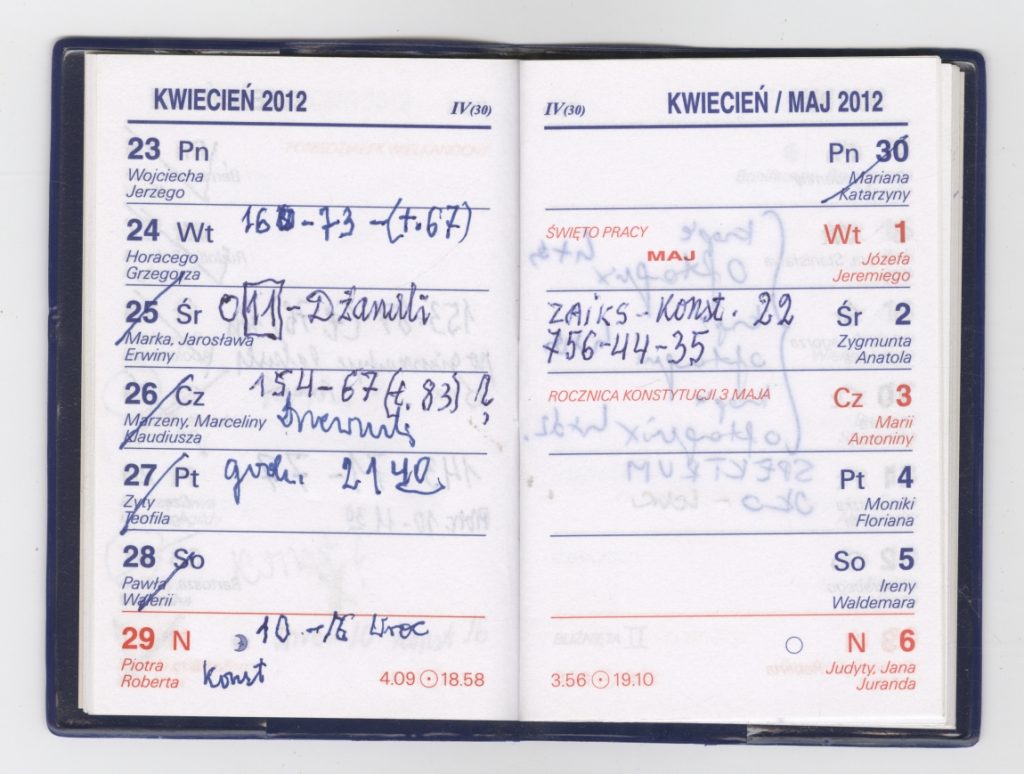 KWIECIEŃ 2012
IV(30)
23 Pn
Wojciecha
Jerzego
24 Wt
-73 -(t.67)
Horacego
Grzegorza
25 Śr
11 - Dżandli
Marka, Jarosława
Erwiny
26 Cz
154-67 (t. 83)
Marzeny, Marceliny
Klaudiusza
27 Pt
godz. 21 40
Zyty
Teofila
28 So
Pawła
Walerii
29 N
10 -
Piotra
Roberta
Konst
4.09 18.58
IV(30)
KWIECIEŃ / MAJ 2012
Pn 30
Mariana
Katarzyny
ŚWIĘTO PRACY
MAJ
Wt 1
Józefa
Jeremiego
ZAIKS - Konst. 22
756-44-35
Śr 2
Zygmunta
Anatola
ROCZNICA KONSTYTUCJI 3 MAJA
Cz 3
Marii
Antoniny
Pt 4
Moniki
Floriana
So 5
Ireny
Waldemara
N 6
Judyty, Jana
Juranda
3.56 19.10